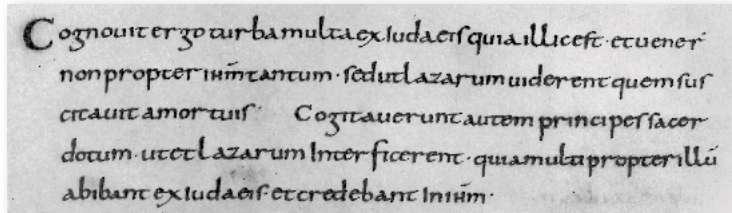 Cognouit ergo turba multa ex iudaeis quia illic est· et uener̄
non propter ihm̄ tantum· sed ut lazarum uiderent quem sus
citauit a mortuis· Cogitauerunt autem principes sacer
dotum· ut et lazarum interficerent· quia multi propter illū
abibant ex iudaeis· et credebant in ihm̄·